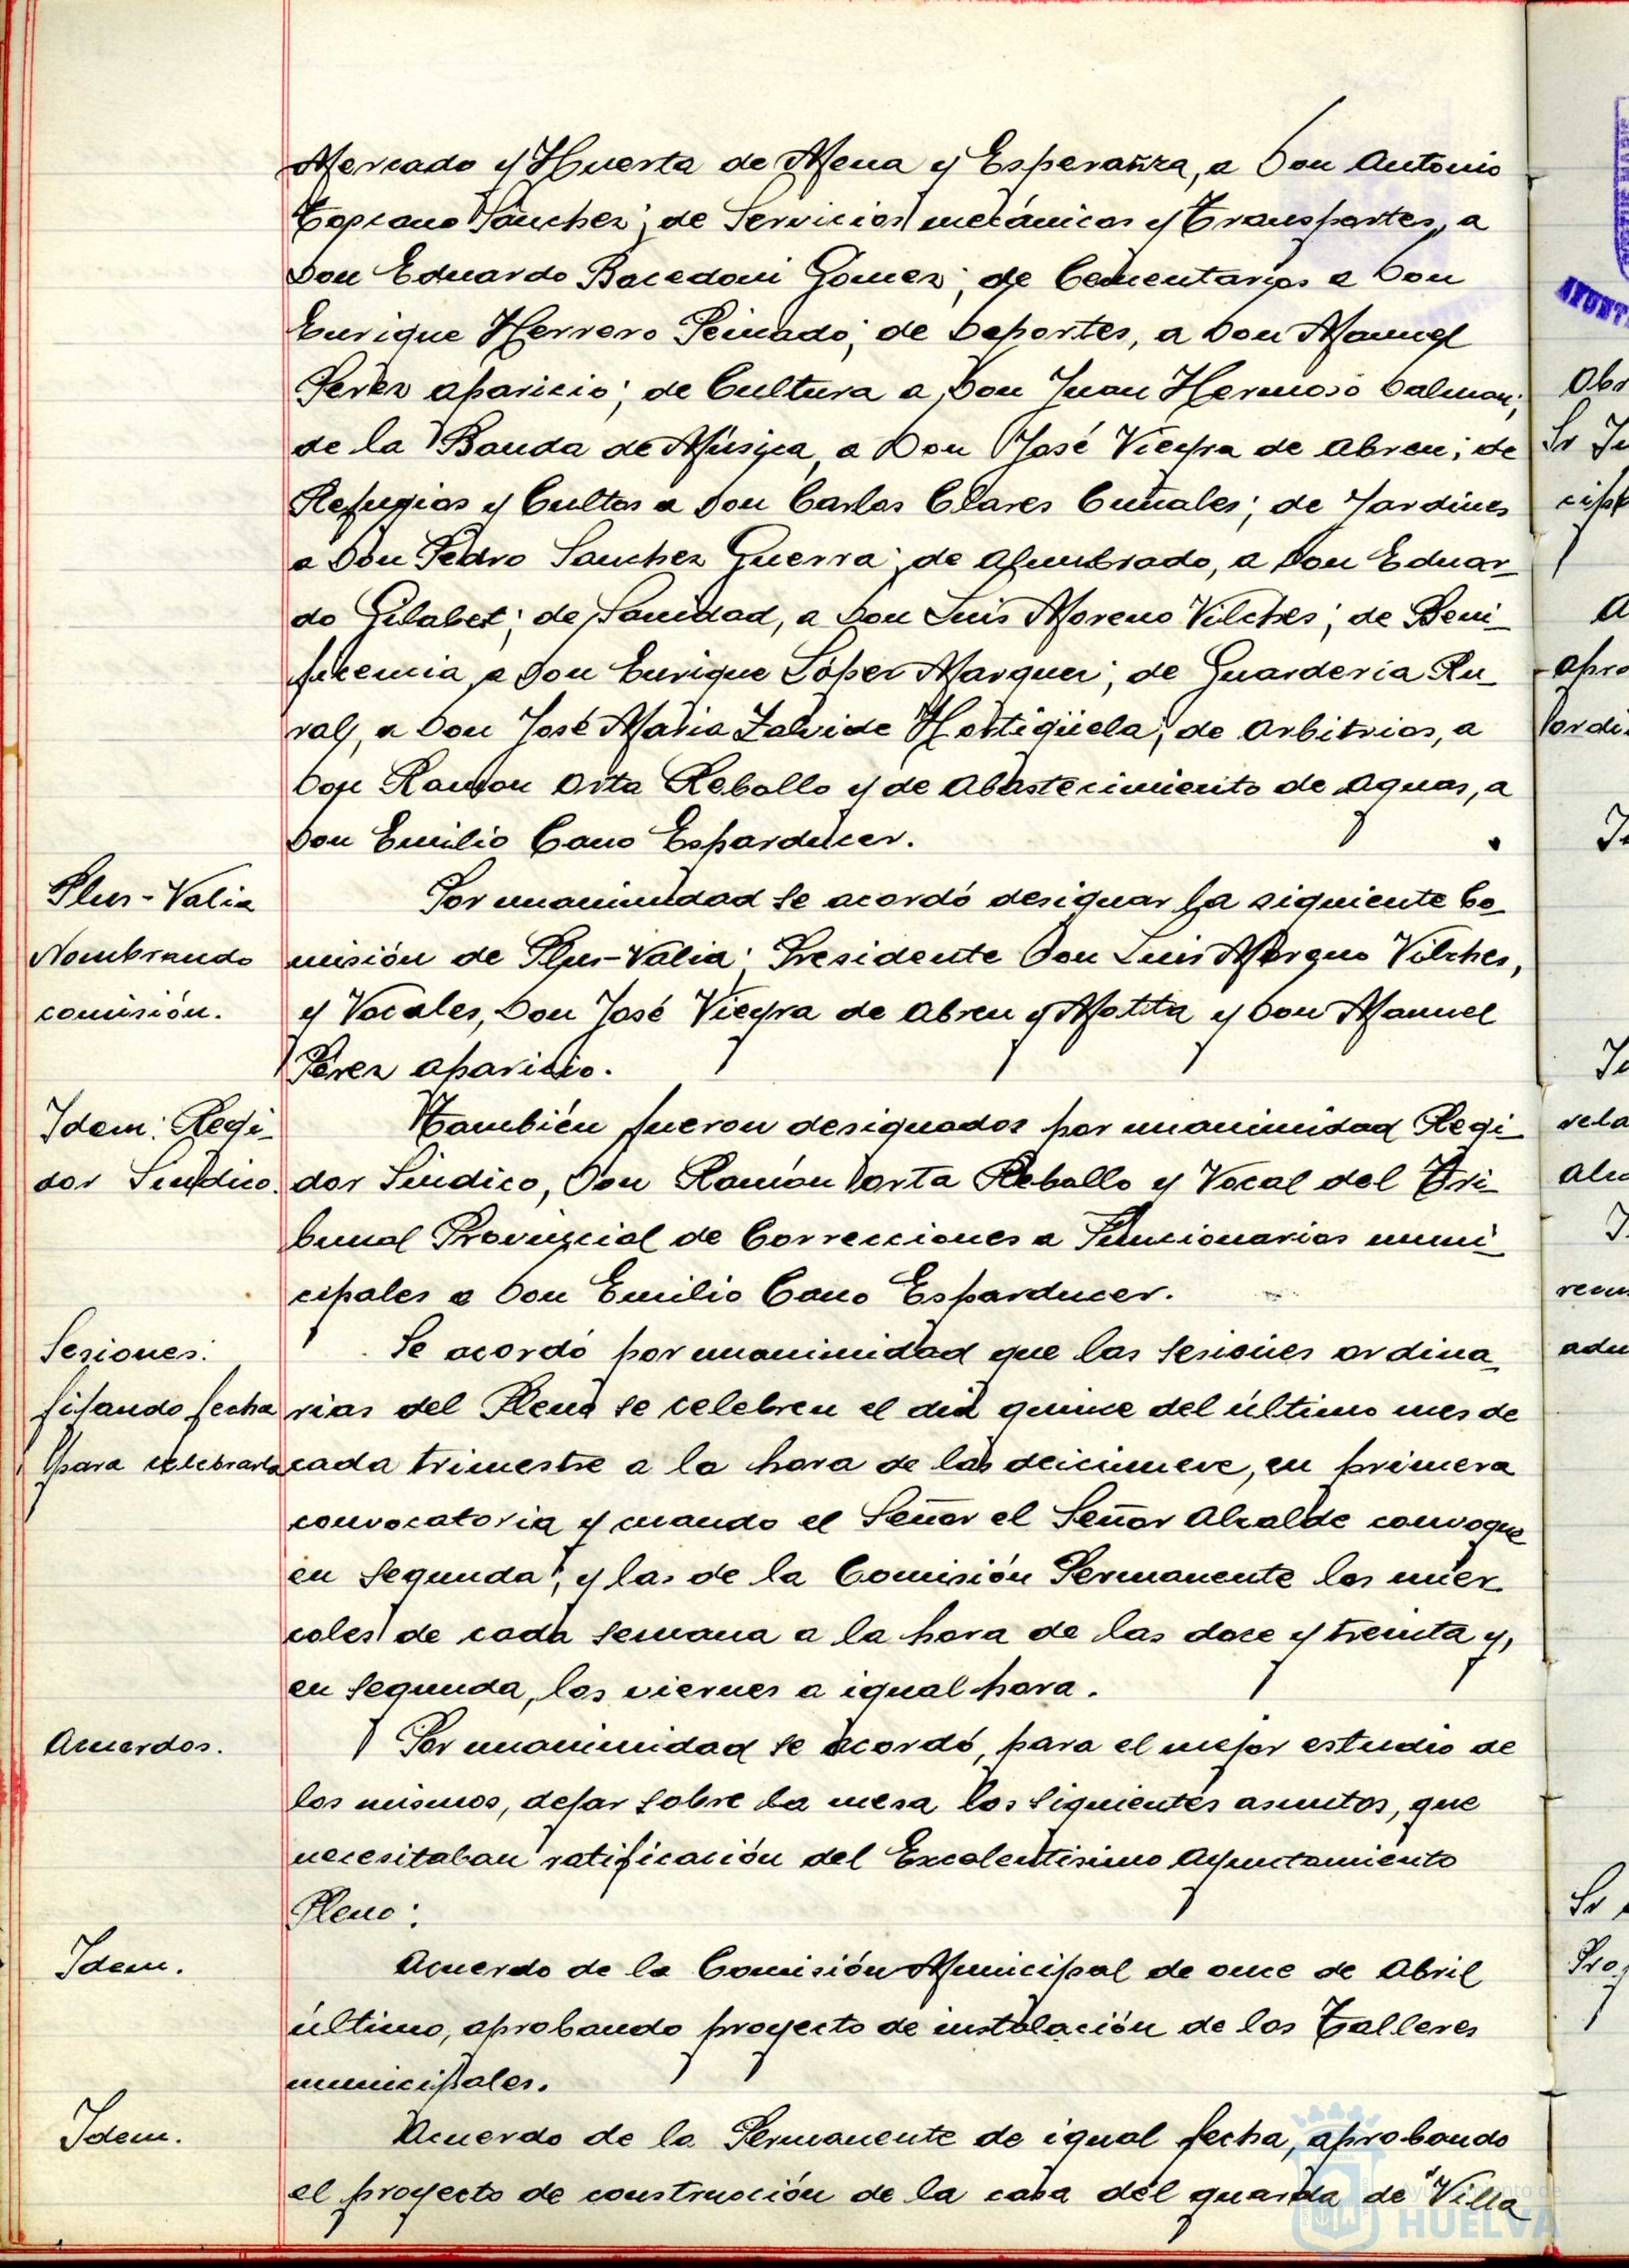 Mercado y Huerta de Mena y Esperanza, a Don Antonio
Toscano Sánchez; de Servicios mecánicos y Transportes, a
Don Eduardo Bacedoni Gomez; de Cementarios a Don
Enrique Herrero Peinado; de Deportes, a Don Manuel
Perez aparicio; de Cultura a Don Juan Hermoso Dalmau;
de la Banda de Música, a Don José Vieyra de Abreu; de
Refugios y Cultos a Don Carlos Clares Cuñales; de Jardines
a Don Pedro Sanchez Guerra; de Alumbrado, a Don Eduar-
do Gilabet; de Sanidad, a Don Luis Moreno Vilches; de Beni-
ficencia, a Don Enrique López Marquez; de Guarderia Ru-
ral, a Don José Maria Zalvide Hortigüela; de Arbitrios, a
Don Ramon Orta Rebollo y de Abastecimiento de Aguas, a
Don Emilio Cano Esparducer.
Plus-Valia
Nombrando
comisión.
Por unanimidad se acordó designar la siguiente Co-
misión de Plus-Valia: Presidente Don Luis Moreno Vilches,
y Vocales, Don José Vieyra de Abreu y Motta y Don Manuel
Pérez aparicio.
Idem: Regi-
dor Sindico.
También fueron designados por unanimidad Regi-
dor Sindico, Don Ramón Orta Rebollo y Vocal del Tri-
bunal Provincial de Correcciones a Funcionarios muni-
cipales a Don Emilio Cano Esparducer.
Sesiones:
fijando fecha
para celebrarla
Se acordó por unanimidad que las sesiones ordina-
rias del Pleno se celebren el dia quince del último mes de
cada trimestre a la hora de las deicinueve, en primera
convocatoria y cuando el Señor el Señor Alcalde convoque
en segunda; y las de la Comisión Permanente los miér-
coles de cada semana a la hora de las doce y treinta y,
en segunda, los viernes a igual hora.
Acuerdos.
Por unanimidad se acordó, para el mejor estudio de
los mismos, dejar sobre la mesa los siguientes asuntos, que
necesitaban ratificación del Excelentisimo Ayuntamiento
Pleno:
Idem.
Acuerdo de la Comisión Municipal de once de Abril
último, aprobando proyecto de instalación de los Talleres
municipales.
Idem.
Acuerdo de la Permanente de igual fecha, aprobando
el proyecto de construcción de la casa del guarda de "Villa
Ayuntamiento de
HUELVA